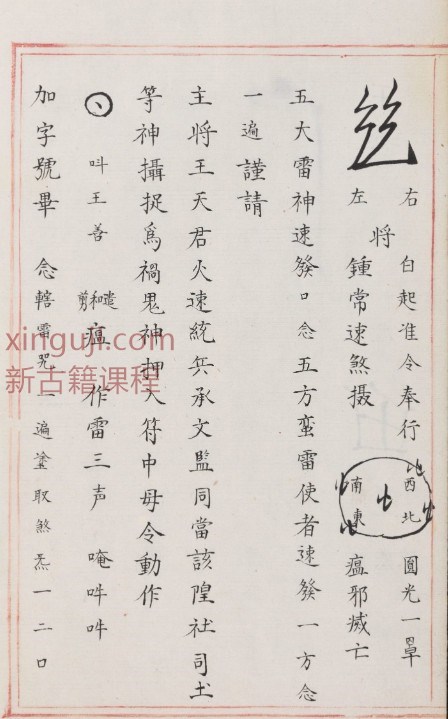 右 白起准令奉行 西北 圓光一罩
將
左 鍾常速煞摄 南東 瘟邪滅亡
五大雷神速發口念五方蛮雷使者速發一方念
一遍謹請
主将王天君火速統兵承文監同當該隍社司土
等神攝捉為禍鬼神押入符中毋令動作
叫王善 遣和剪瘟 作雷三声 唵吽吽
加字號畢 念轄雷咒一遍塗取煞炁一二口
xinguji.com
新古籍课程